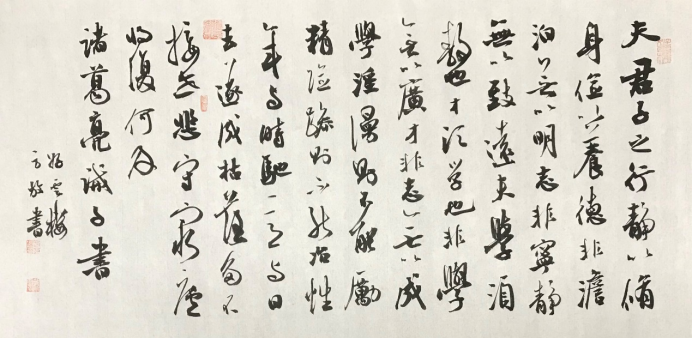 夫君子之行靜以脩
身儉以養德非澹
泊無以明志非寧靜
無以致遠夫學須
靜也才須學也非學
無以廣才非志無以成
學淫慢則不能勵
精險躁則不能治性
年與時馳意與日
去遂成枯落多不
接世悲守窮廬
將復何及
諸葛亮誡子書